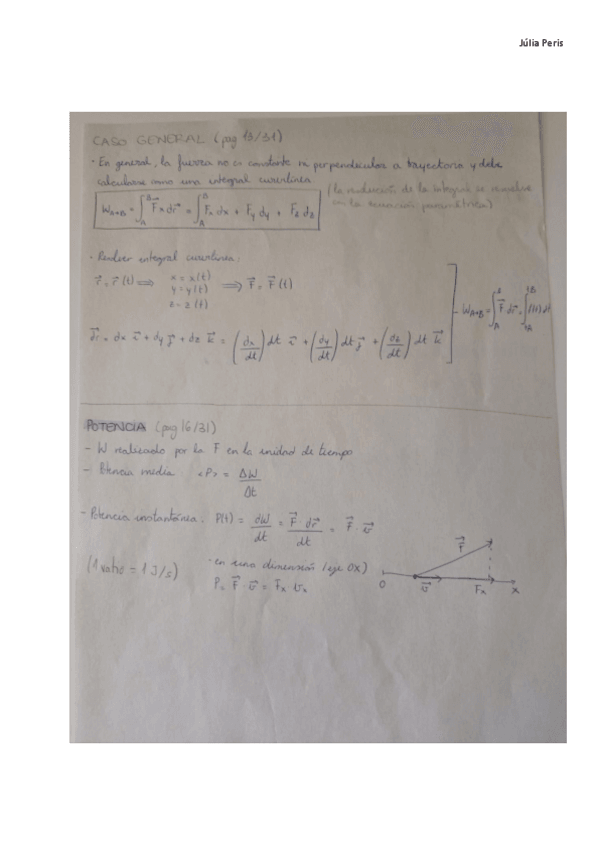 Júlia Peris
CASO GENERAL (pag 13/31)
· En general, la fuerza no es constante ni perpendicular a trayectoria y debe
calcularse como una integral curvilínea (la reducción de la integral se resuelve
con la ecuación paramétrica)
W_{A→B} = ∫_A^B F⃗ x dr⃗ = ∫_A^B F_x dx + F_y dy + F_z dz
· Resolver integral curvilínea:
r⃗ = r⃗(t) ⟹ x = x(t) ⟹ F⃗ = F⃗(t)
y = y(t)
z = z(t)
W_{A→B} = ∫_A^B F⃗ dr⃗ = ∫_{tA}^{tB} f(t) dt
dr⃗ = dx i⃗ + dy j⃗ + dz k⃗ = (dx/dt) dt i⃗ + (dy/dt) dt j⃗ + (dz/dt) dt k⃗
POTENCIA (pag 16/31)
- W realizado por la F en la unidad de tiempo
- Potencia media <P> = ΔW/Δt
- Potencia instantánea. P(t) = dW/dt = F⃗ · dr⃗/dt = F⃗ · v⃗
(1 vatio = 1 J/s)
· en una dimensión (eje OX)
P = F⃗ · v⃗ = F_x · v_x
F⃗
O v⃗ F_x x